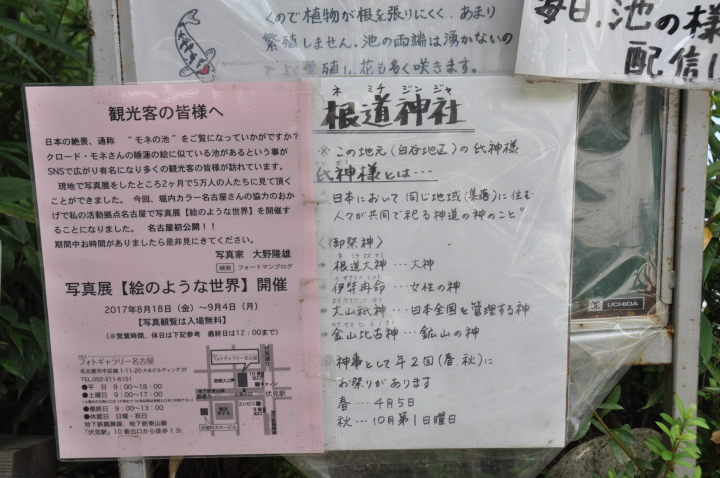 くので植物が根を張りにくく、あまり
繁殖しません。池の両端は湧かないの
でよく繁殖し、花も多く咲きます。
毎日、池の様
配信し
観光客の皆様へ
日本の絶景、通称 “モネの池”をご覧になっていかがですか?
クロード・モネさんの睡蓮の絵に似ている池があるという事が
SNSで広がり有名になり多くの観光客の皆様が訪れています。
現地で写真展をしたところ2ヶ月で5万人の人たちに見て頂く
ことができました。 今回、堀内カラー名古屋さんの協力のおか
げで私の活動拠点名古屋で写真展【絵のような世界】を開催す
ることになりました。 名古屋初公開!!
期間中お時間がありましたら是非見にきてください。
写真家 大野隆雄
検索 フォートマンブログ
写真展【絵のような世界】開催
2017年8月18日(金)~9月4日(月)
【写真観覧は入場無料】
(※営業時間、休日は下記参考 最終日は12:00まで)
フォトギャラリー名古屋
名古屋市中区錦1-11-20大永ビルディング2F
TEL.052-211-6151
●平 日 9:00~18:00
●土曜日 9:00~17:00
●最終日 9:00~13:00
●休館日 日曜・祝日
地下鉄鶴舞線、地下鉄東山線
「伏見駅」10番出口から徒歩1分
フォトギャラリー名古屋
コンビニ
伏見駅
ネ ミチ ジン ジャ
根道神社
※ この地元(白谷地区)の氏神様
氏神様とは…
日本において同じ地域(集落)に住む
人々が共同で祀る神道の神のこと”
〈御祭神〉
根道大神…大神
イザナミノミコト
伊弉冉命…女性の神
大山祇神…日本全国を管理する神
カナヤマヒコノカミ
金山比古神…鉱山の神
神事として年2回(春、秋)に
お祭りがあります
春…4月5日
秋…10月第1日曜日
UCHIDA